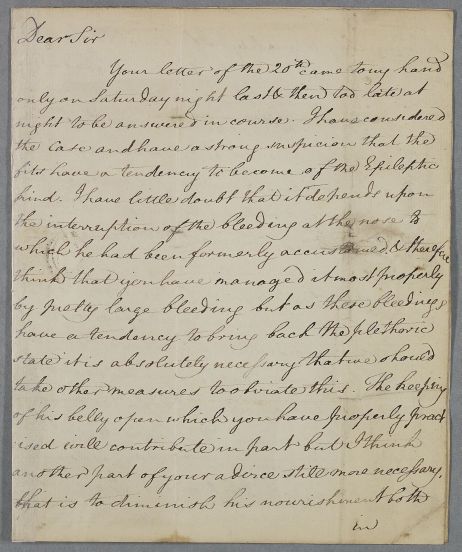 Dear Sir
Your letter of the 20th came to my hand
only on Saturday night last & then too late at
night to be answered in course. I have considered
the case and have a strong suspicion that the
fits have a tendency to become of the Epileptic
kind. I have little doubt that it depends upon
the interruption of the bleeding at the nose to
which he had been formerly accustomed, & therefore
think that you have managed it most properly
by pretty large bleeding but as these bleedings
have a tendency to bring back the plethoric
state it is absolutely necessary that we should
take other measures to obviate this. The keeping
of his belly open which you have properly pract
ised will contribute in part but I think
another part of your advice still more necessary.
that is to diminish his nourishment both
in